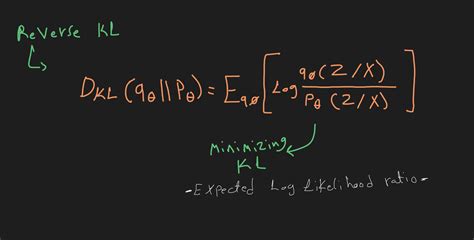 Reverse KL
DKL (qθ || Pθ) = Eqø [Log qø(Z/X) / Pθ (Z/X)]
minimizing
KL
-Expected Log likelihood ratio-